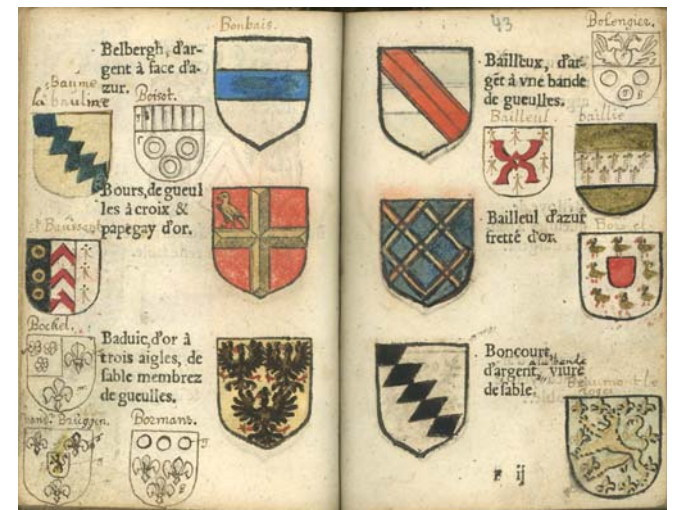 Bonbais.
Belbergh, d'ar-
gent à face d'a-
zur.
Baume
la baulme
Boisot.
Bours, de gueul
les à croix &
papegay d'or.
Bockel.
Baduic, d'or à
trois aigles, de
sable membrez
de gueulles.
Bozmans.
43
Bolongier.
Bailleux, d'ar-
gēt à vne bande
de gueulles.
Bailleul.
baillie
Bailleul d'azur
fretté d'or.
Boncourt,
a la bande
d'argent, viuré
de sable.
Beaumont le
F ij